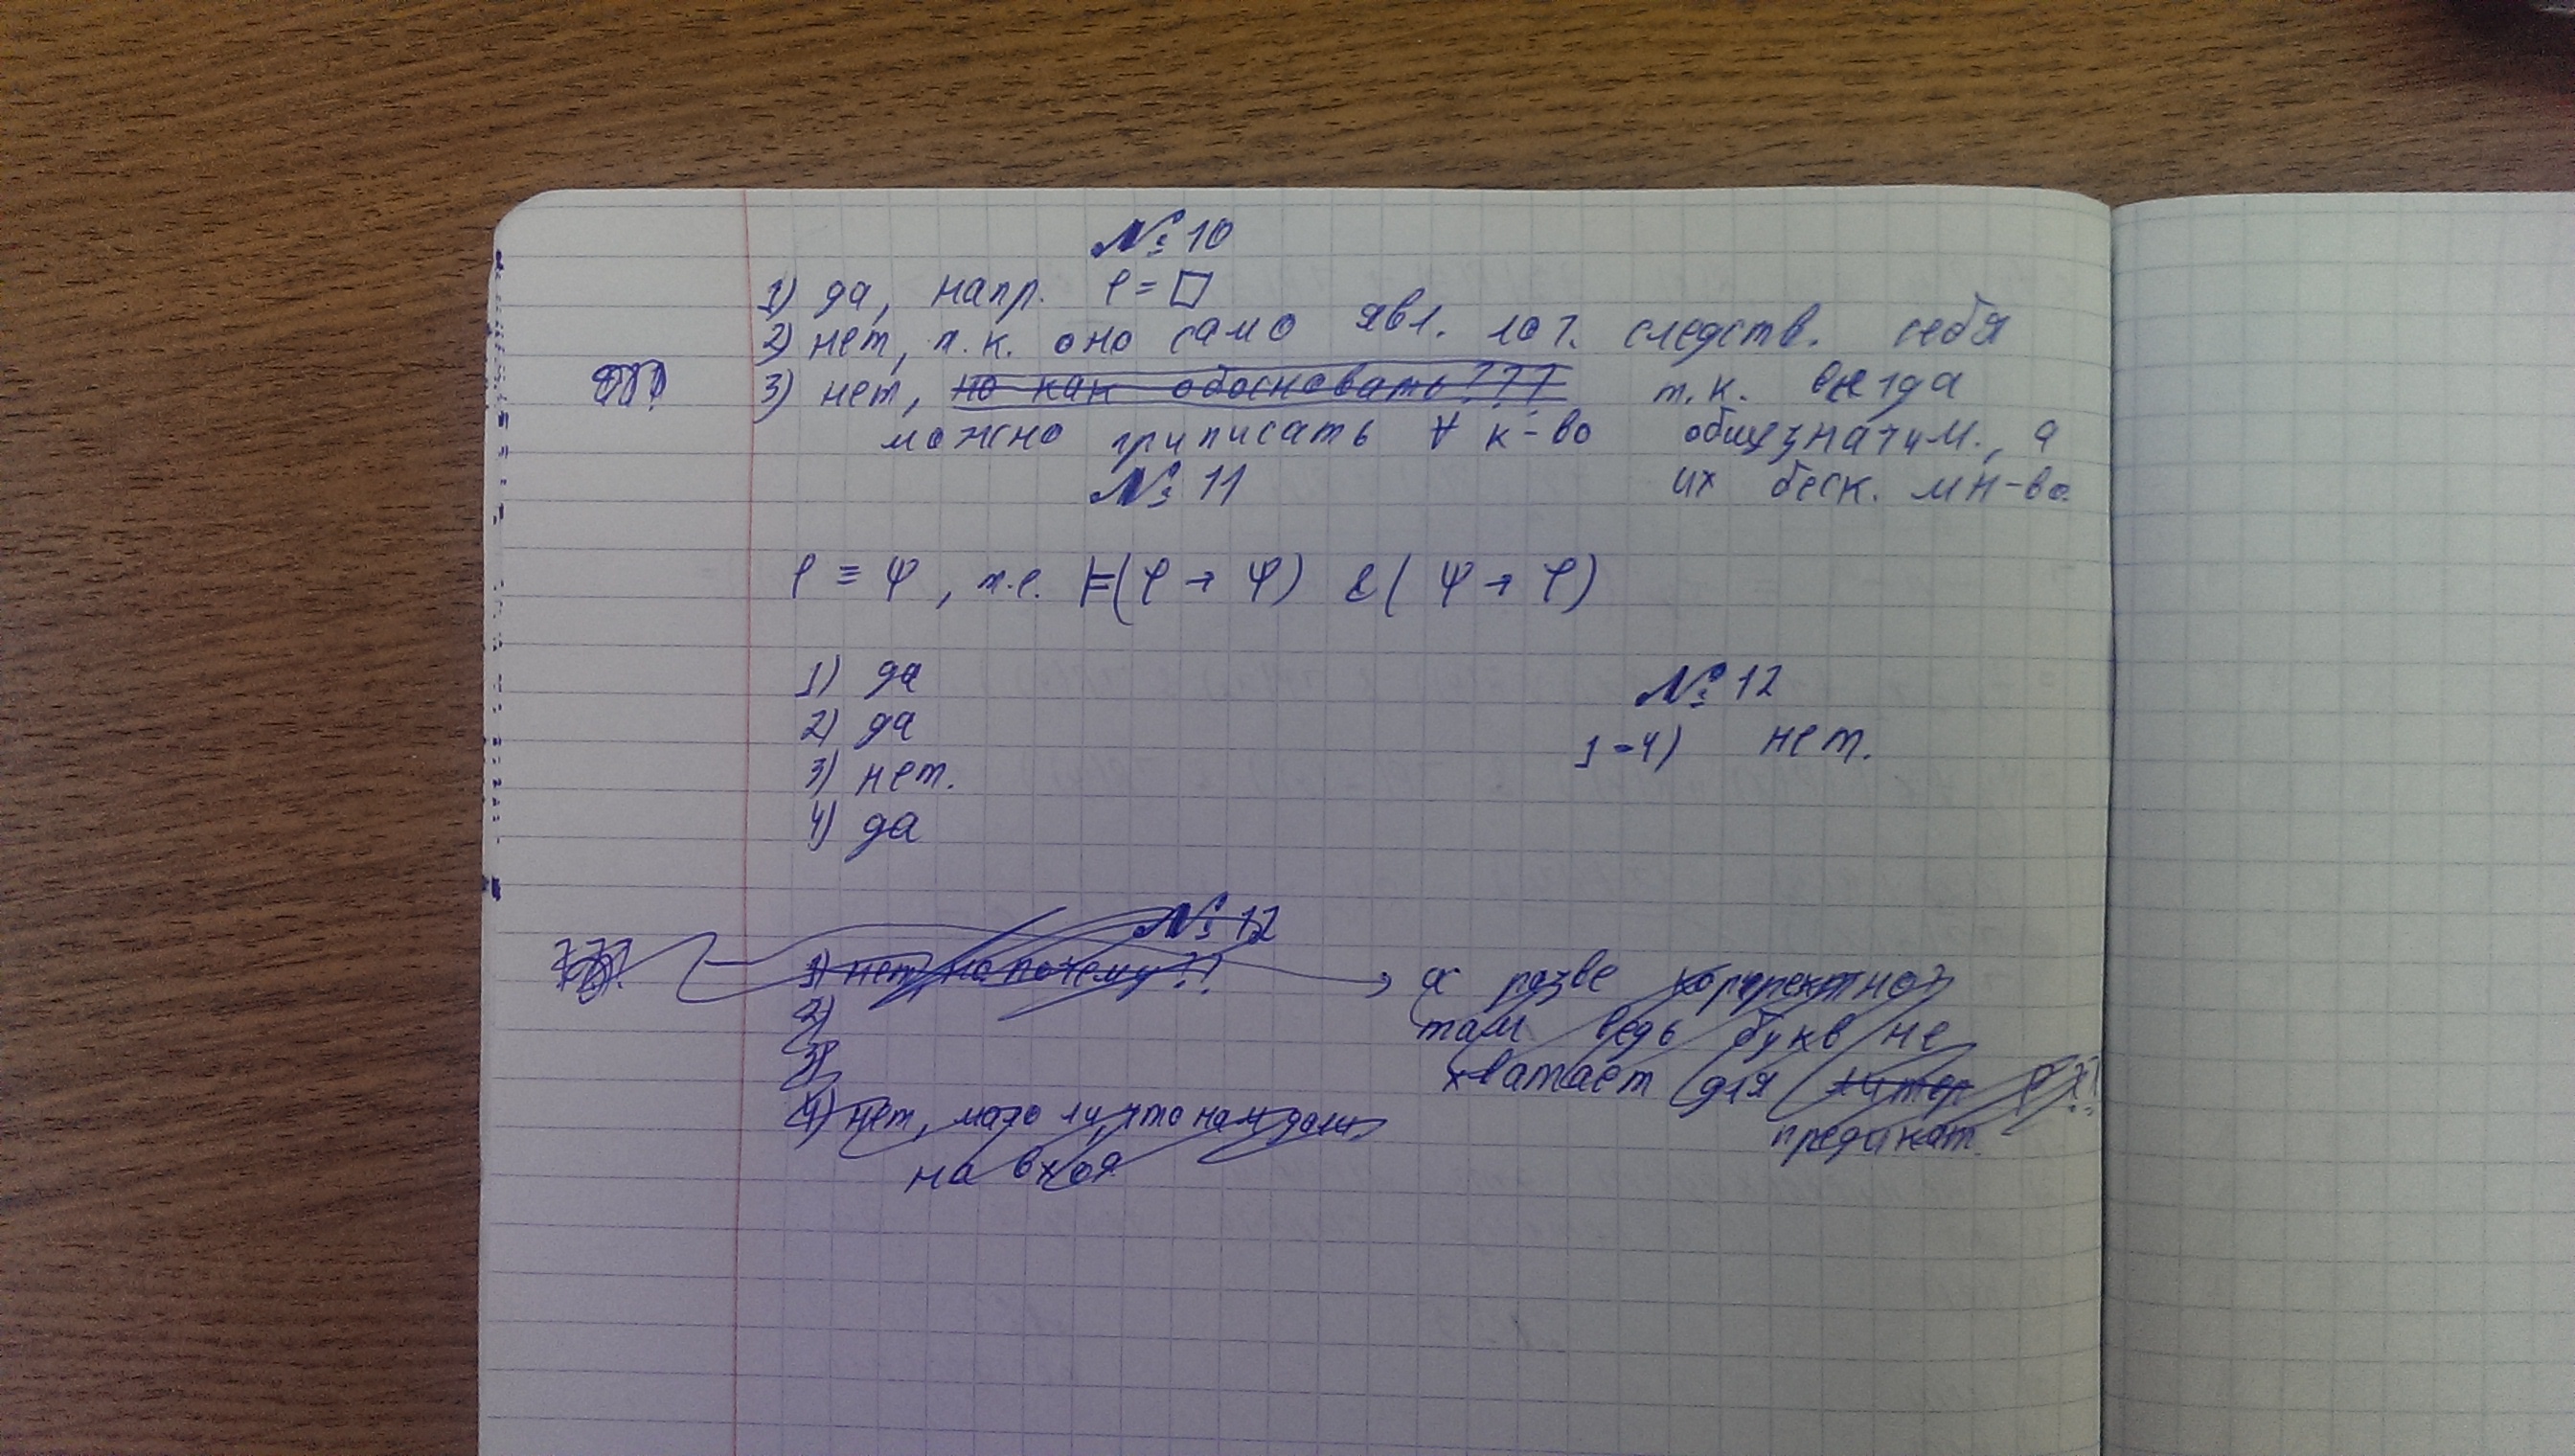 № 10
1) да, напр. φ = □
2) нет, т.к. оно само явл. лог. следств. себя
3) нет, но как обосновать??? т.к. всегда
можно приписать ∀ к-во общезначим., а
их беск. мн-во.
№ 11
φ ≡ ψ, т.е. ⊨(φ → ψ) & (ψ → φ)
1) да
2) да
3) нет.
4) да
№ 12
1-4) нет.
№ 12
1) нет, но почему??
2)
3)
4) нет, мало ли, что нам дали
на вход
а разве корректно?
там ведь букв не
хватает для литер
предикат.